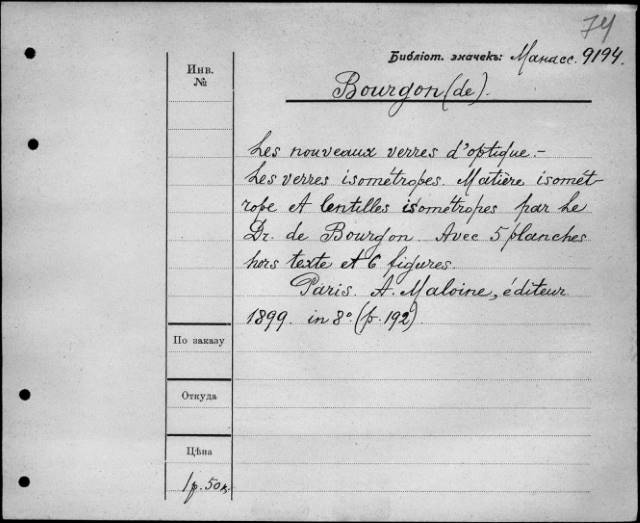 74
Библіот. значекъ: Манасс. 9194.
Инв.
№
Bourgon (de).
Les nouveaux verres d'optique.-
Les verres isométropes. Matière isomét-
rope et lentilles isométropes par le
Dr. de Bourgon. Avec 5 planches
hors texte et 6 figures.
Paris. A. Maloine, éditeur
1899. in 8° (p. 192)
По заказу
Откуда
Цѣна
1 р. 50 к.